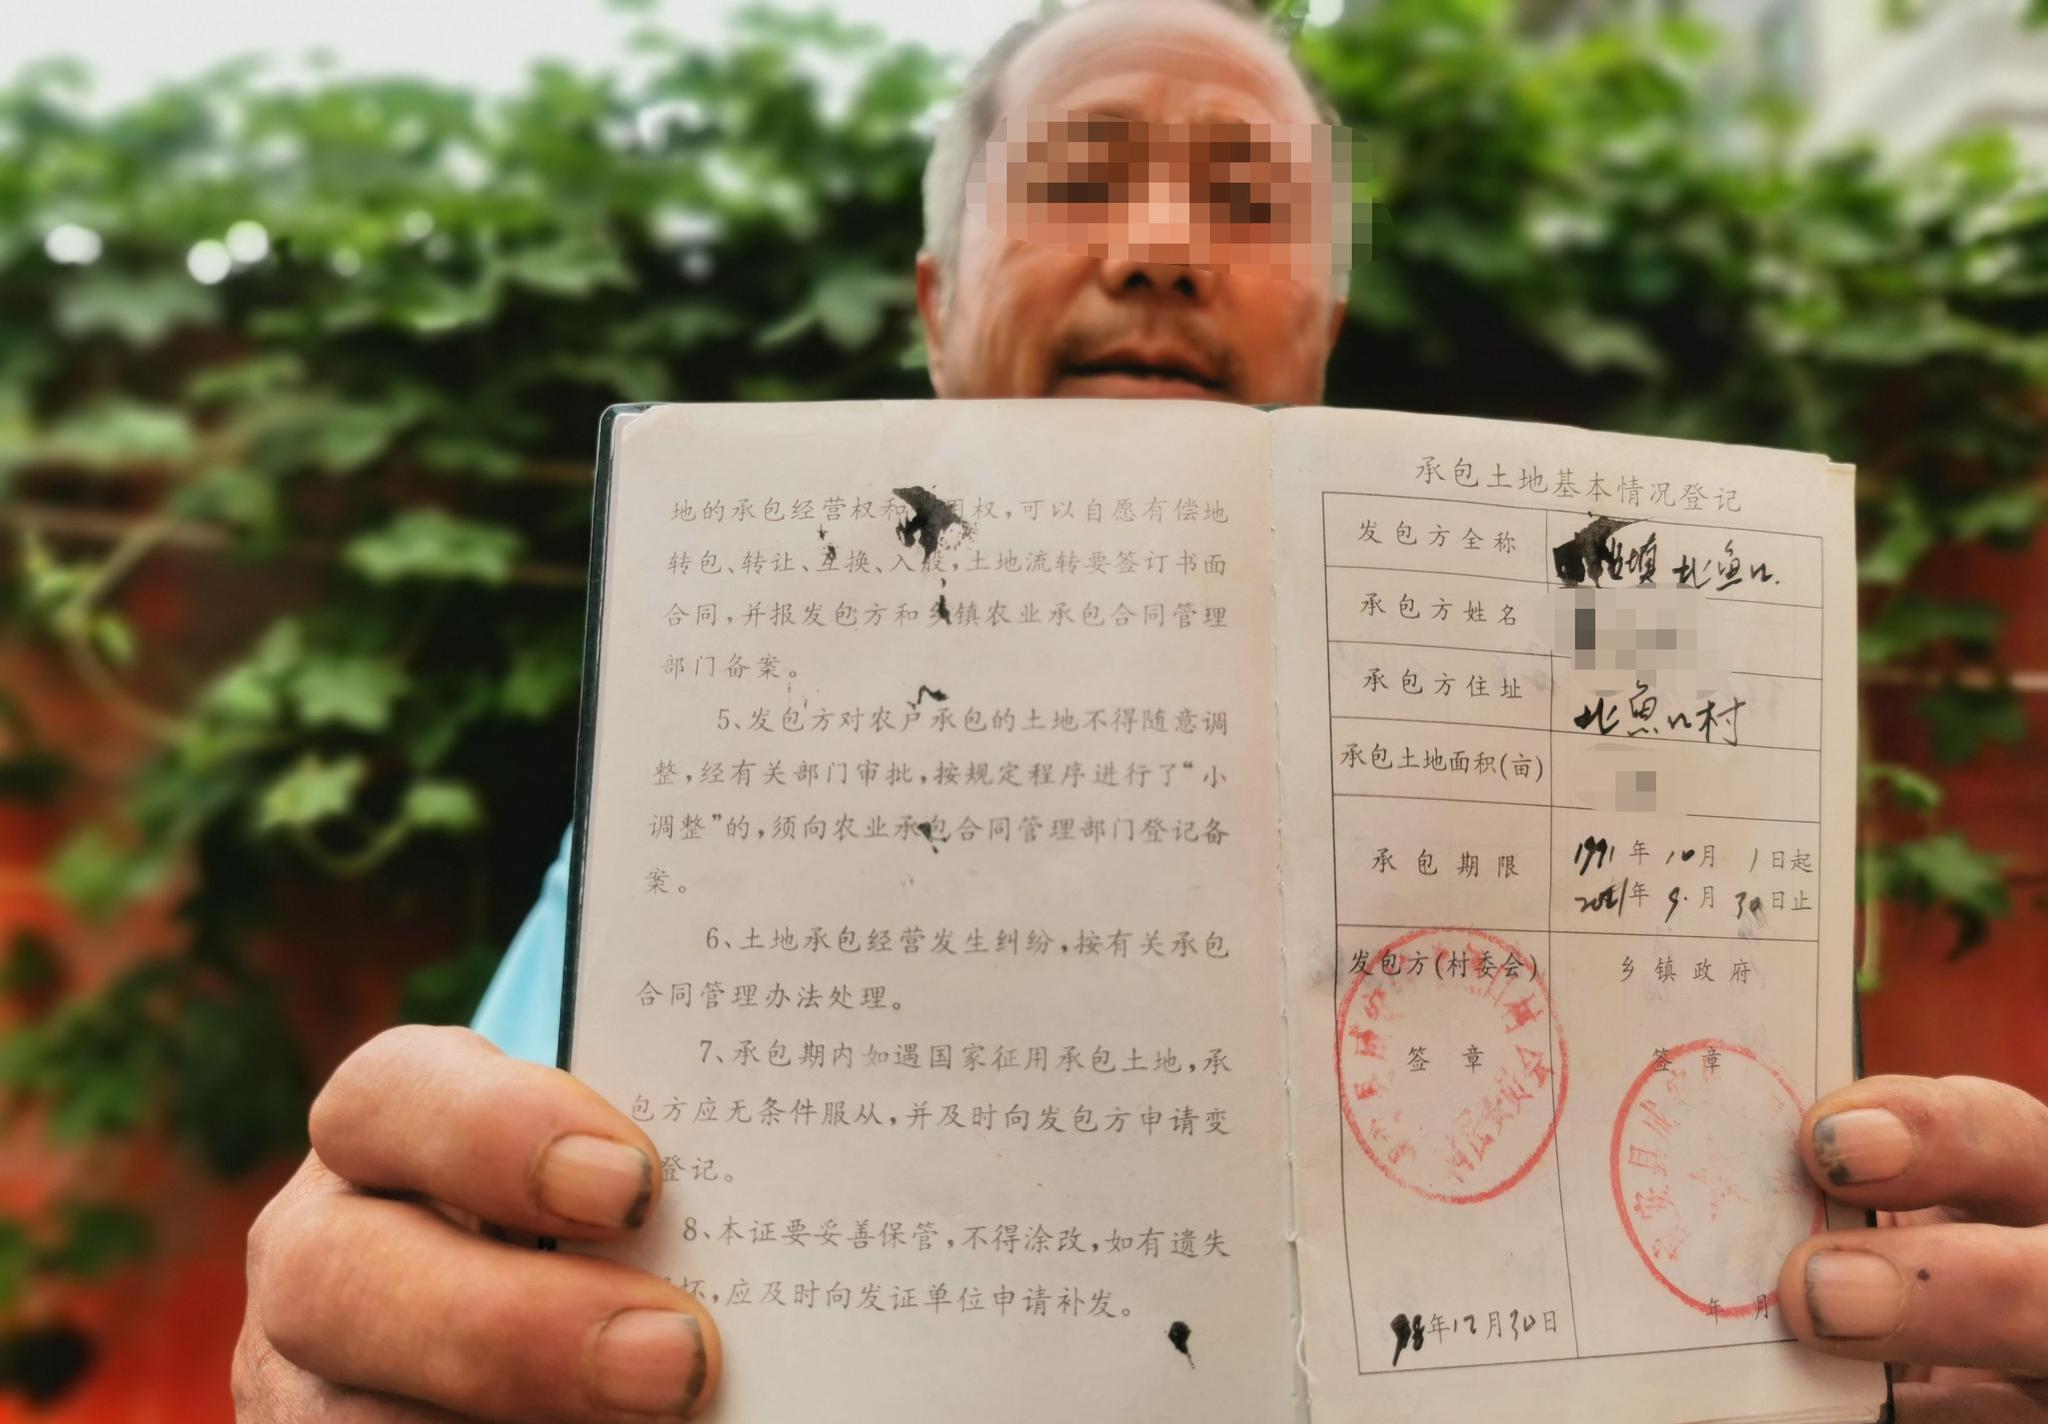 地的承包经营权和 用权，可以自愿有偿地
转包、转让、互换、入股，土地流转要签订书面
合同，并报发包方和乡镇农业承包合同管理
部门备案。
5、发包方对农户承包的土地不得随意调
整，经有关部门审批，按规定程序进行了“小
调整”的，须向农业承包合同管理部门登记备
案。
6、土地承包经营发生纠纷，按有关承包
合同管理办法处理。
7、承包期内如遇国家征用承包土地，承
包方应无条件服从，并及时向发包方申请变
登记。
8、本证要妥善保管，不得涂改，如有遗失
坏，应及时向发证单位申请补发。
承包土地基本情况登记
发包方全称 北鱼口
承包方姓名
承包方住址 北鱼口村
承包土地面积(亩)
承包期限 1991年10月1日起
年9月30日止
发包方(村委会) 乡镇政府
签章 签章
98年12月30日 年 月